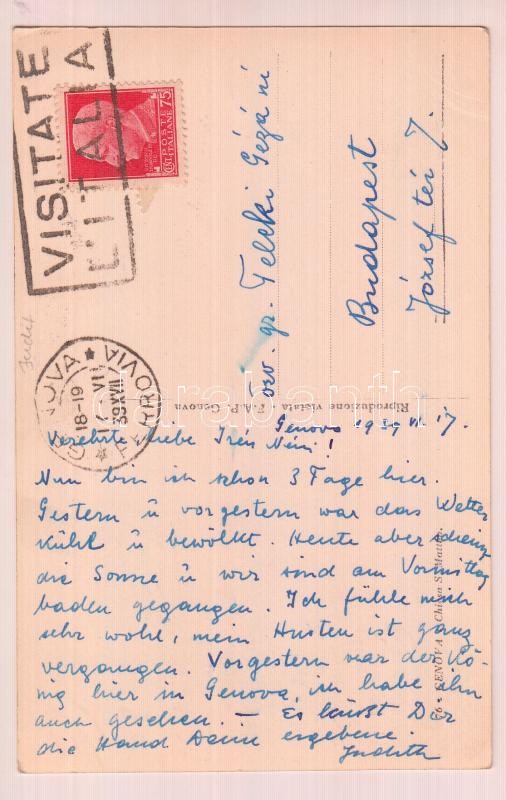 VISITATE
L'ITALIA
POSTE
ITALIANE
CENT. 75
GENOVA FERROVIA
18-19
17 VII
39 XVII
Judit
Özv. gr. Teleki Gézáné
Budapest
József tér 7.
Riproduzione vietata F.A.P. Genova
66 - GENOVA - Chiesa S. Matteo
darabanth
Genova 1939 VII 17.
Verehrte liebe Iren Néni!
Nun bin ich schon 3 Tage hier.
Gestern u vorgestern war das Wetter
kühl u bewölkt. Heute aber schien
die Sonne u wir sind am Vormittag
baden gegangen. Ich fühle mich
sehr wohl, mein Husten ist ganz
vergangen. Vorgestern war der Kö-
nig hier in Genova, ich habe ihn
auch gesehen. – Es küsst Dir
die Hand Deine ergebene
Judith